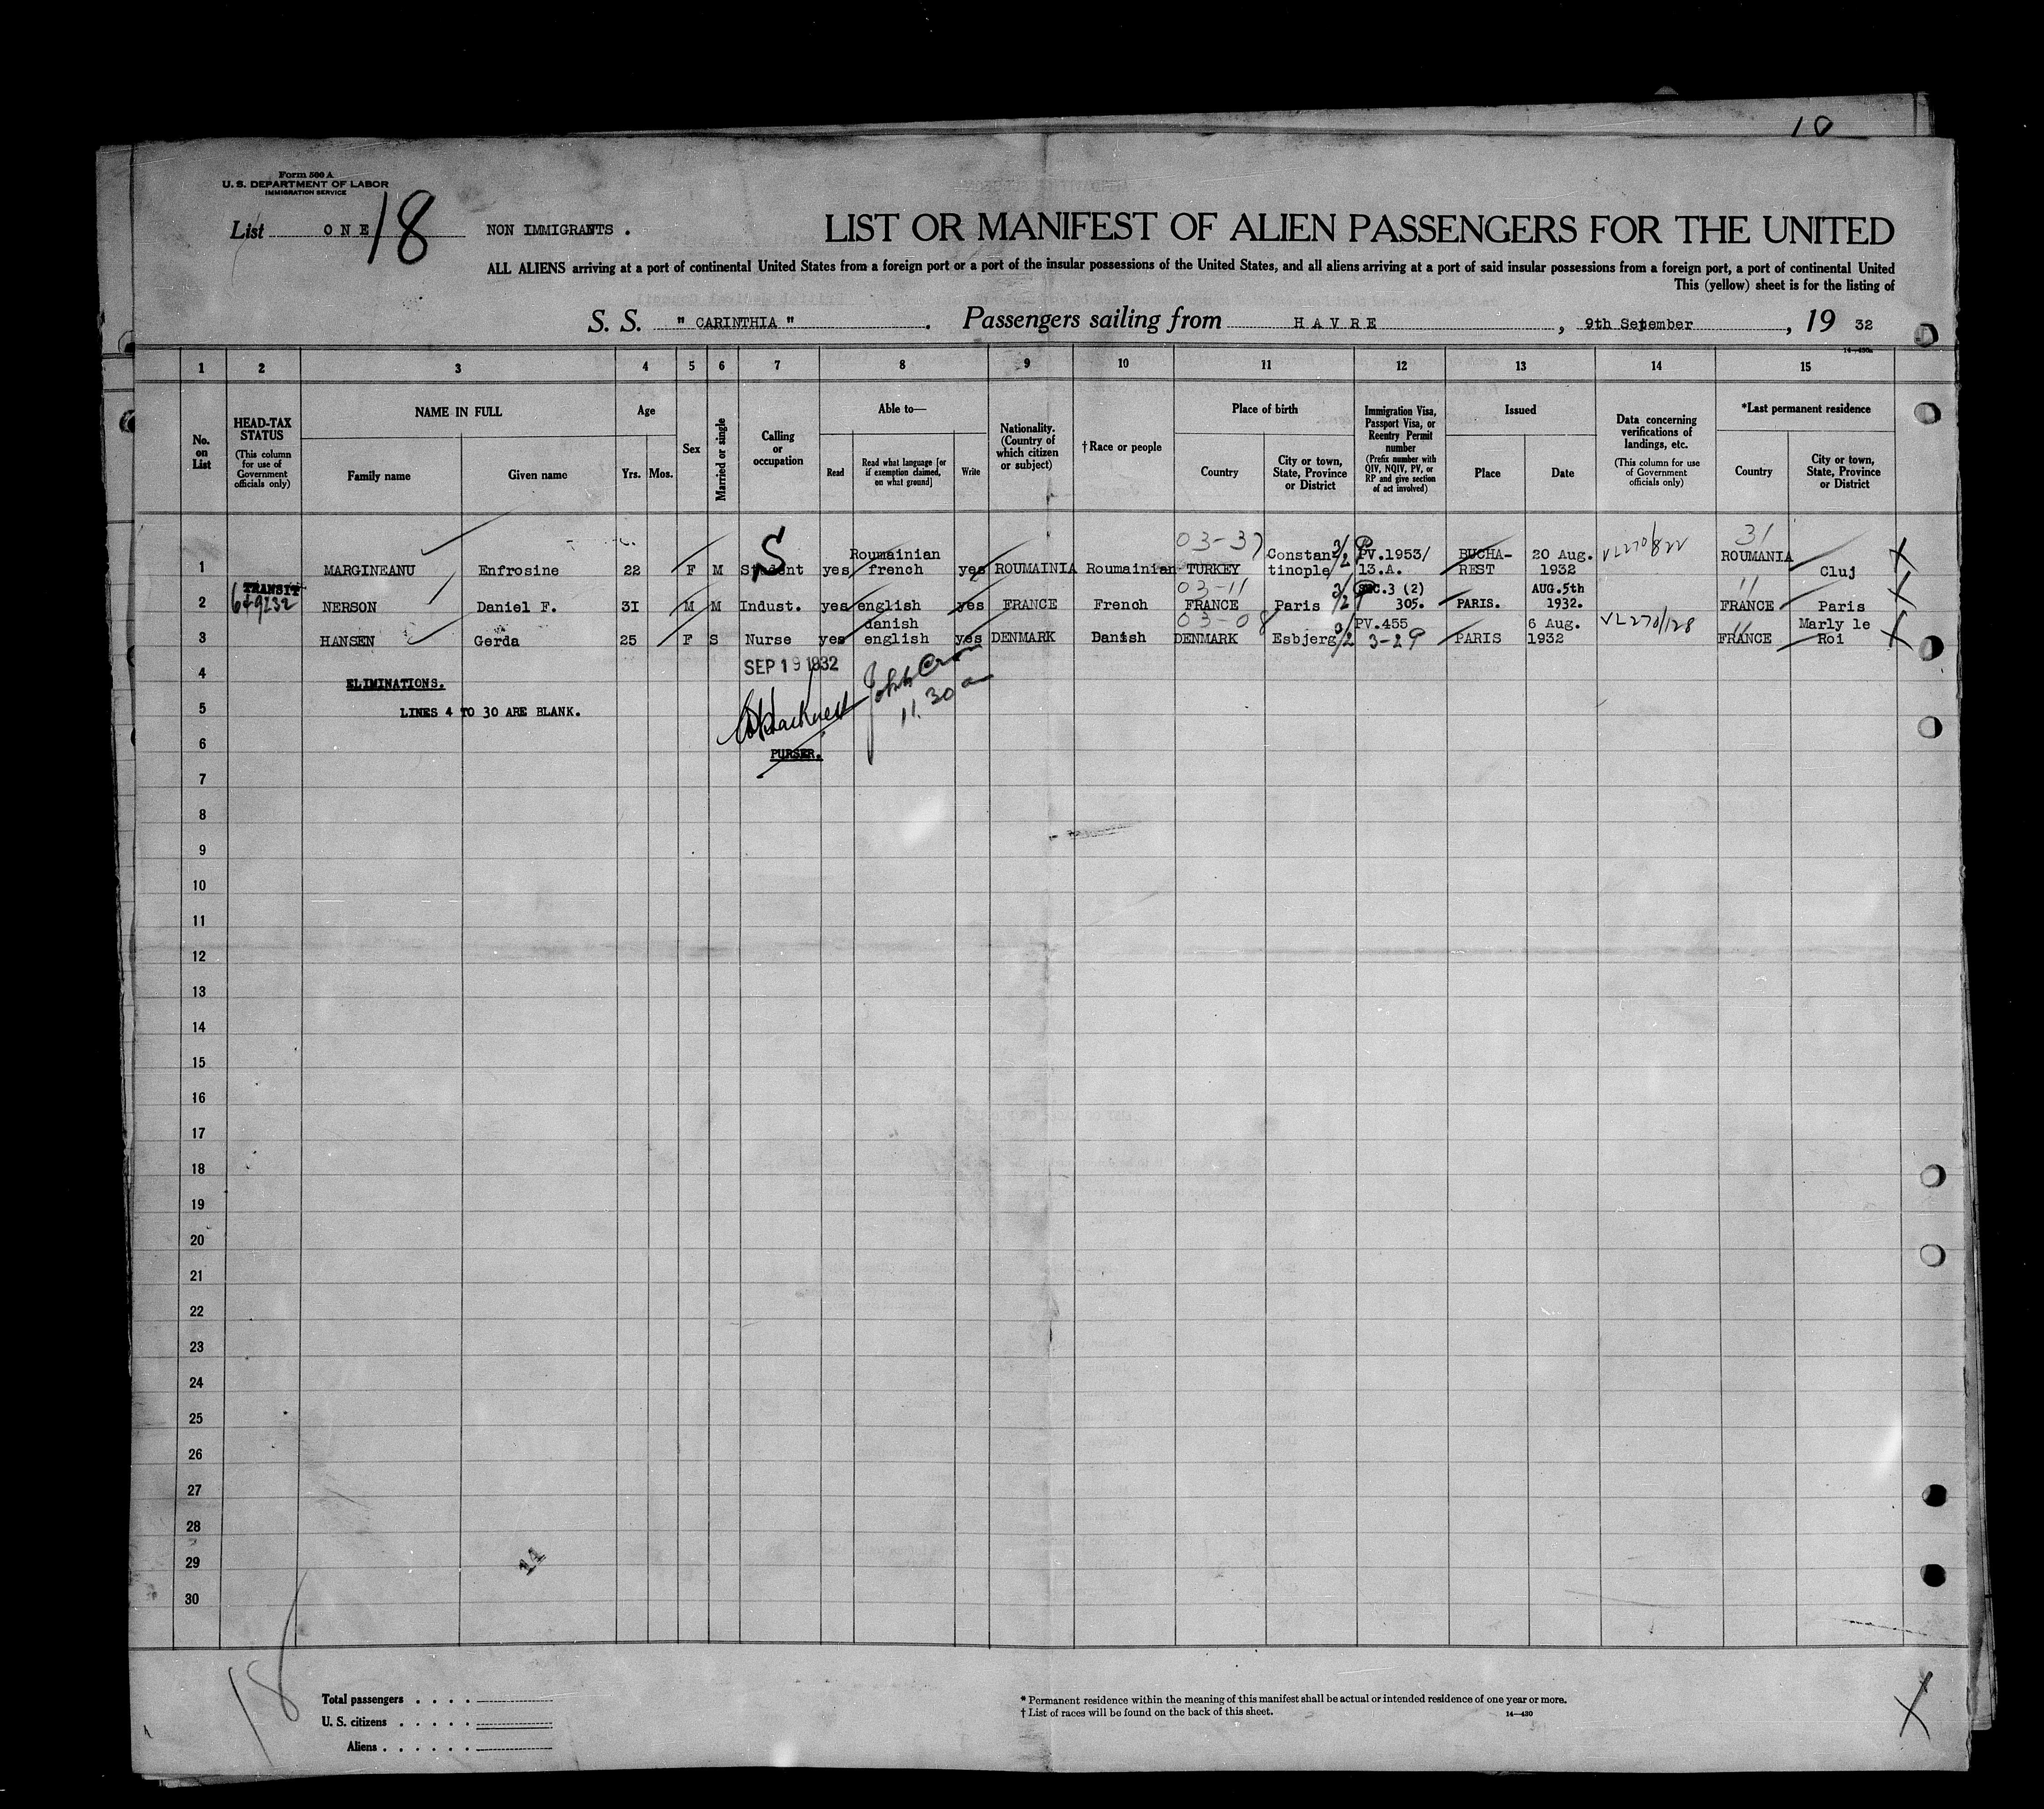 10
Form 500 A
U. S. DEPARTMENT OF LABOR
IMMIGRATION SERVICE
List O N E 18 NON IMMIGRANTS .
LIST OR MANIFEST OF ALIEN PASSENGERS FOR THE UNITED
ALL ALIENS arriving at a port of continental United States from a foreign port or a port of the insular possessions of the United States, and all aliens arriving at a port of said insular possessions from a foreign port, a port of continental United
This (yellow) sheet is for the listing of
S. S. " CARINTHIA " . Passengers sailing from H A V R E , 9th September , 19 32
1 2 3 4 5 6 7 8 9 10 11 12 13 14 15
No. on List
HEAD-TAX STATUS
(This column for use of Government officials only)
NAME IN FULL
Family name
Given name
Age
Yrs.
Mos.
Sex
Married or single
Calling or occupation
Able to—
Read
Read what language [or if exemption claimed, on what ground]
Write
Nationality. (Country of which citizen or subject)
† Race or people
Place of birth
Country
City or town, State, Province or District
Immigration Visa, Passport Visa, or Reentry Permit number
(Prefix number with QIV, NQIV, PV, or RP and give section of act involved)
Issued
Place
Date
Data concerning verifications of landings, etc.
(This column for use of Government officials only)
*Last permanent residence
Country
City or town, State, Province or District
1 MARGINEANU Enfrosine 22 F M Student S yes Roumainian french yes ROUMAINIA Roumainian 03-37 TURKEY Constantinople PV.1953/ 13.A. BUCHA-REST 20 Aug. 1932 31 ROUMANIA Cluj X
2 TRANSIT NERSON Daniel F. 31 M M Indust. yes english yes FRANCE French 03-11 FRANCE Paris SEC.3 (2) 305. PARIS. AUG.5th 1932. 11 FRANCE Paris X
3 HANSEN Gerda 25 F S Nurse yes danish english yes DENMARK Danish 03-08 DENMARK Esbjerg PV.455 3-2 PARIS 6 Aug. 1932 VL270/128 11 FRANCE Marly le Roi X
SEP 19 1932
4
ELIMINATIONS.
5
LINES 4 TO 30 ARE BLANK.
11.30 am
6
PURSER.
7
8
9
10
11
12
13
14
15
16
17
18
19
20
21
22
23
24
25
26
27
28
29
30
18
Total passengers . . . .
U. S. citizens . . . . .
Aliens . . . . . .
* Permanent residence within the meaning of this manifest shall be actual or intended residence of one year or more.
† List of races will be found on the back of this sheet.
14—430
X